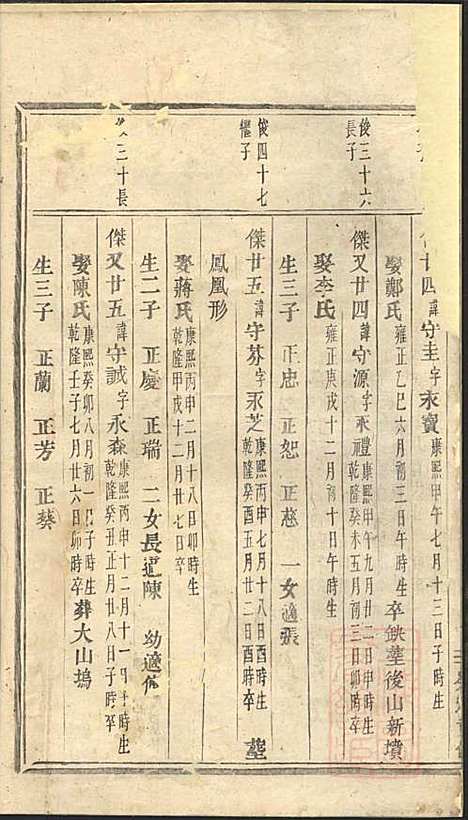 俊三十六
長子
俊四十七
繼子
二十長
廿四諱守圭字永寶康熙甲午七月十三日子時生
娶鄭氏雍正乙巳六月初三日午時生卒缺塟後山新墳
傑又廿四諱守源字永禮康熙甲午九月廿二日申時生乾隆癸未五月初三日卯時卒
娶李氏雍正庚戌十二月初十日午時生
生三子 正忠 正恕 正慈 一女適張
傑廿五諱守芥字永芝康熙丙申七月十八日酉時生乾隆癸酉五月廿二日酉時卒 塟
鳳凰形
娶蔣氏康熙丙申二月十八日卯時生乾隆甲戌十二月廿七日卒
生二子 正慶 正瑞 二女長適陳 幼適
傑又廿五諱守誠字永森康熙丙申十二月十一日子時生乾隆癸丑正月廿八日子時卒
娶陳氏康熙癸卯八月初一日子時生乾隆壬子七月廿六日卯時卒葬大山塢
生三子 正蘭 正芳 正葵